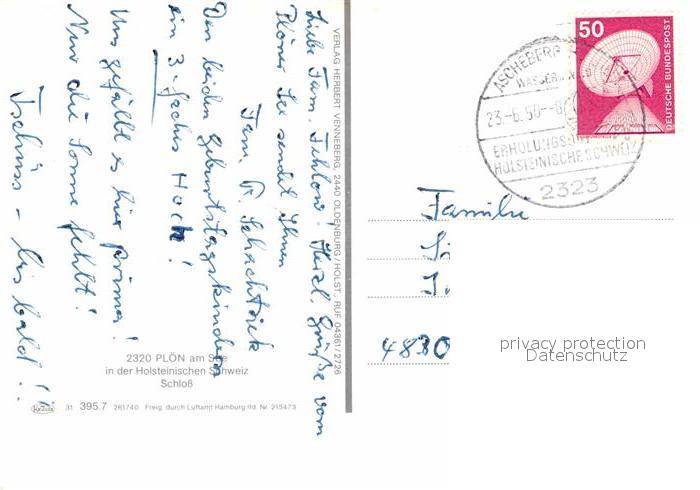 Liebe Fam. Herzl. Grüße vom
Plöner See sendet Ihnen
Fam. F. Schachtsiek
Den beiden Geburtstagskindern
ein 3-faches Hoch!
Uns gefällt es hier prima!
Nur die Sonne fehlt!
Tschüss - bis bald!!
2320 PLÖN am See
in der Holsteinischen Schweiz
Schloß
31 395.7 261740 Freig. durch Luftamt Hamburg lfd. Nr 215473
VERLAG HERBERT VENNEBERG, 2440 OLDENBURG/HOLST. RUF 04361/2726
50
DEUTSCHE BUNDESPOST
ASCHEBERG
ERHOLUNGSORT
HOLSTEINISCHE SCHWEIZ
2323
Familie
4830
privacy protection
Datenschutz